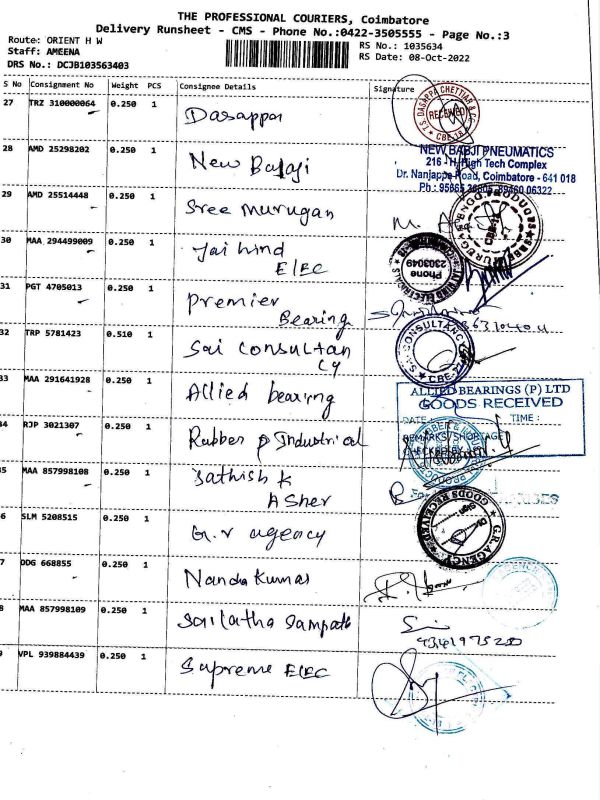 THE PROFESSIONAL COURIERS, Coimbatore
Delivery Runsheet - CMS - Phone No.:0422-3505555 - Page No.:3
Route: ORIENT H W
RS No.: 1035634
Staff: AMEENA
RS Date: 08-Oct-2022
DRS No.: DCJB103563403
S No Consignment No Weight PCS Consignee Details Signature
27 TRZ 310000064 0.250 1 Dasappa
T.S. DASAPPA CHETTIAR & CO
RECEIVED
28 AMD 25298202 0.250 1 New Balaji
NEW BABJI PNEUMATICS
216 - H, High Tech Complex
Dr. Nanjappa Road, Coimbatore - 641 018
29 AMD 25514448 0.250 1 Sree murugan
30 MAA 294499009 0.250 1 Jai hind
ELEC
Phone
2303049
31 PGT 4705013 0.250 1 Premier
Bearing
32 TRP 5781423 0.510 1 Sai consultan
cy
CONSULTANC
33 MAA 291641928 0.250 1 Allied bearing
ALLIED BEARINGS (P) LTD
GOODS RECEIVED
DATE: TIME :
REMARKS/SHORTAGE
34 RJP 3021307 0.250 1 Rubber & Industrial
35 MAA 857998108 0.250 1 Sathish k
Asher
6 SLM 5208515 0.250 1 G.r agency
GOODS RECEIVED
G.R.AGENCY
7 DDG 668855 0.250 1 Nanda kumar
8 MAA 857998109 0.250 1 Sailatha Sampath
9 VPL 939884439 0.250 1 Supreme ELEC